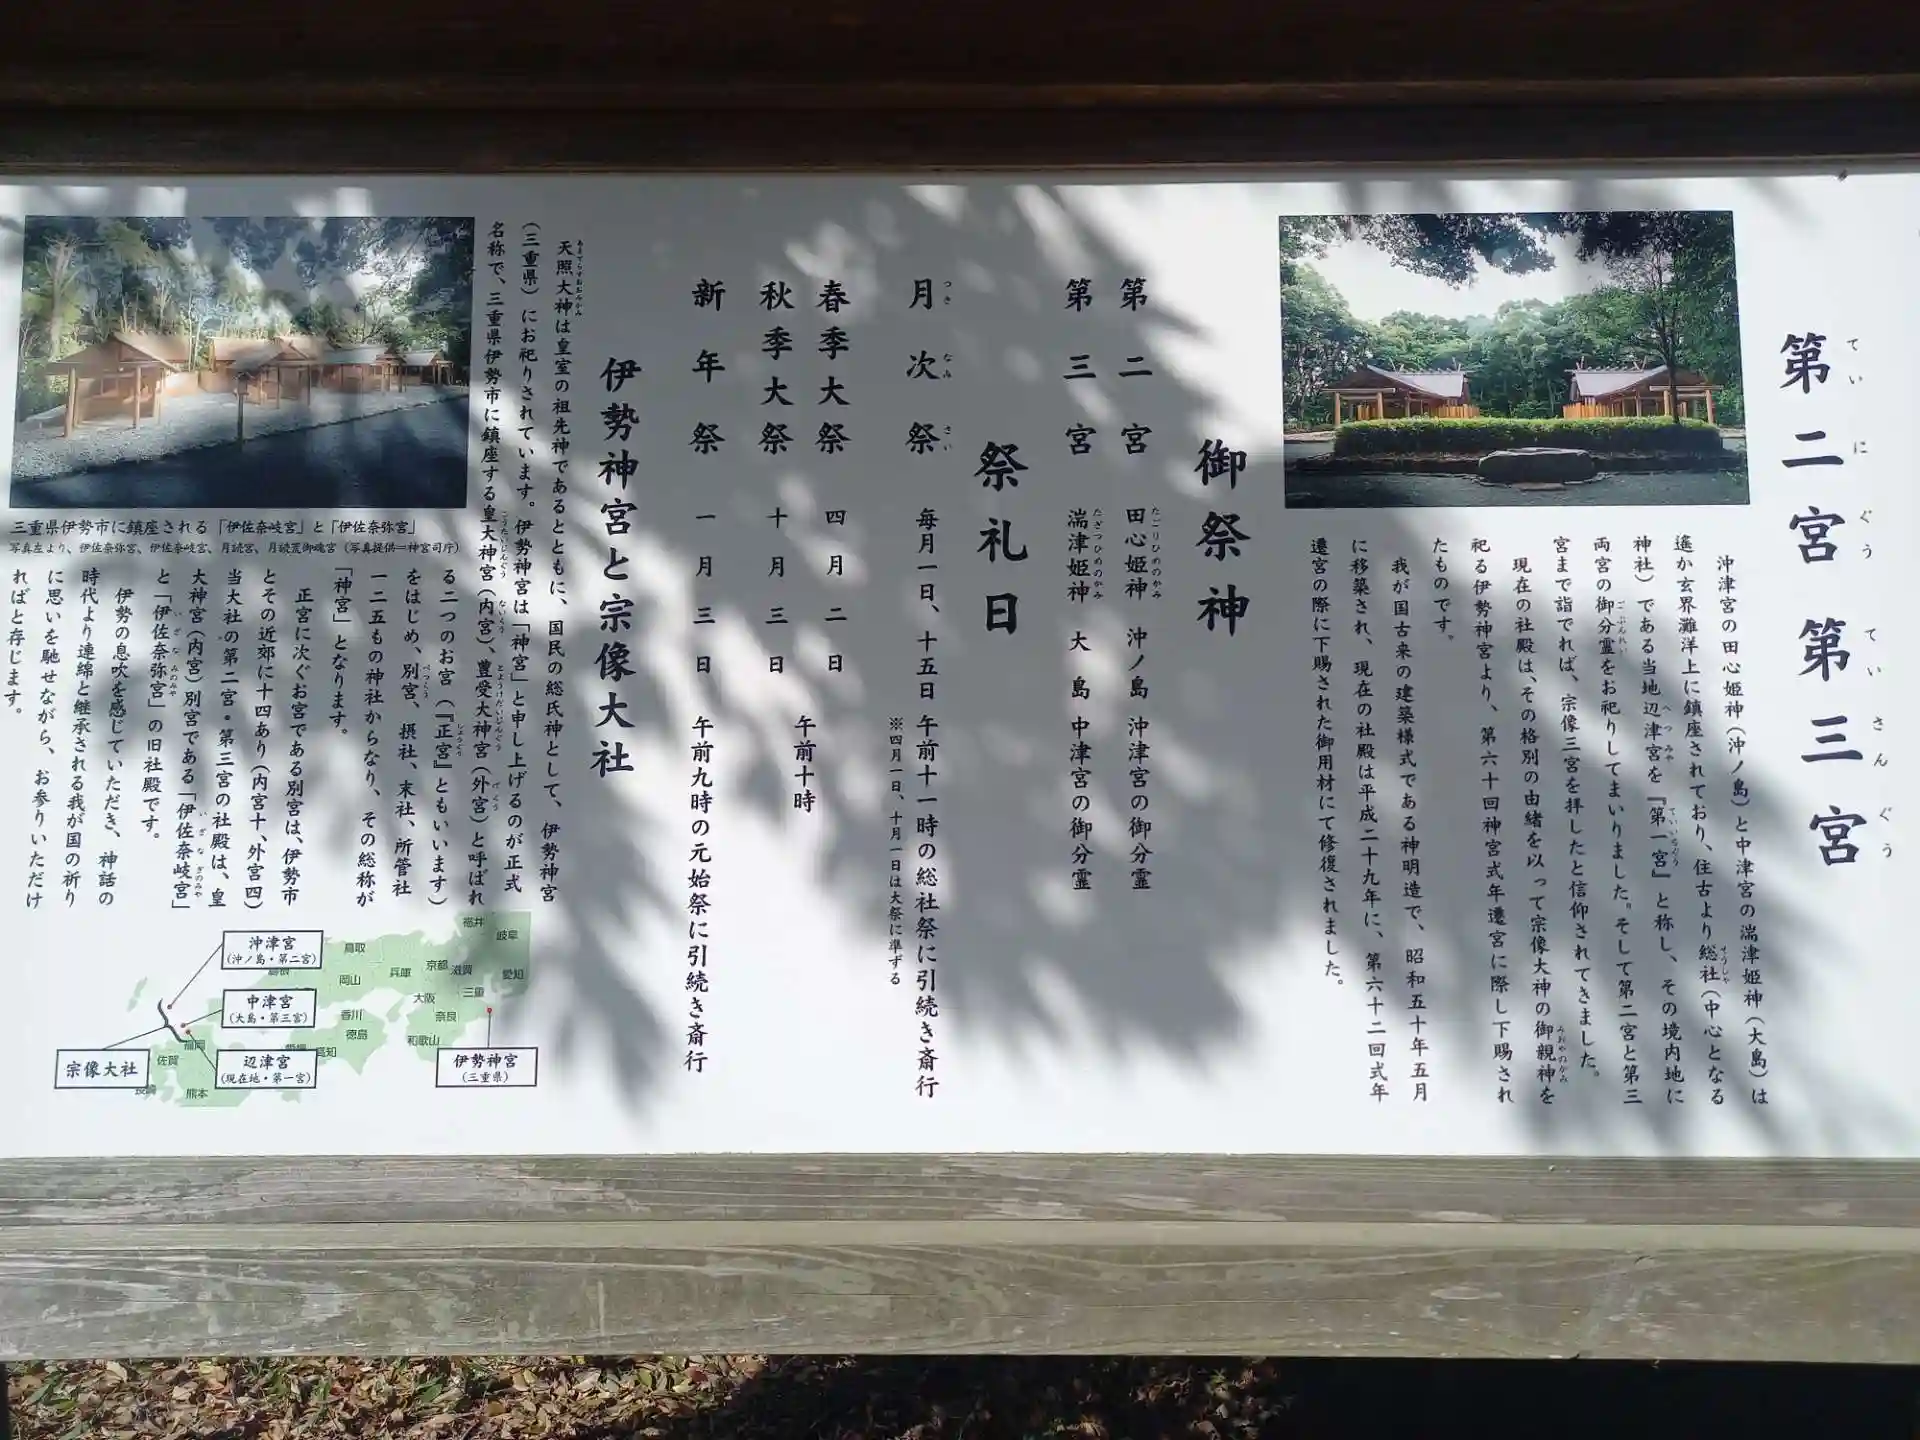 第二宮 第三宮
ていにぐう ていさんぐう
沖津宮の田心姫神(沖ノ島)と中津宮の湍津姫神(大島)は
遙か玄界灘洋上に鎮座されており、住古より総社(中心となる
神社)である当地辺津宮を『第一宮』と称し、その境内地に
両宮の御分霊をお祀りしてまいりました。そして第二宮と第三
宮まで詣でれば、宗像三宮を拝したと信仰されてきました。
現在の社殿は、その格別の由緒を以って宗像大神の御親神を
祀る伊勢神宮より、第六十回神宮式年遷宮に際し下賜され
たものです。
我が国古来の建築様式である神明造で、昭和五十年五月
に移築され、現在の社殿は平成二十九年に、第六十二回式年
遷宮の際に下賜された御用材にて修復されました。
御祭神
第二宮 田心姫神 沖ノ島 沖津宮の御分霊
たごりひめのかみ
第三宮 湍津姫神 大島 中津宮の御分霊
たぎつひめのかみ
祭礼日
月次祭 毎月一日、十五日 午前十一時の総社祭に引続き斎行
つきなみさい
※四月一日、十月一日は大祭に準ずる
春季大祭 四月二日
午前十時
秋季大祭 十月三日
新年祭 一月三日 午前九時の元始祭に引続き斎行
伊勢神宮と宗像大社
天照大神は皇室の祖先神であるとともに、国民の総氏神として、伊勢神宮
(三重県)にお祀りされています。伊勢神宮は「神宮」と申し上げるのが正式
名称で、三重県伊勢市に鎮座する皇大神宮(内宮)、豊受大神宮(外宮)と呼ばれ
る二つのお宮(『正宮』ともいいます)
をはじめ、別宮、摂社、末社、所管社
一二五もの神社からなり、その総称が
「神宮」となります。
正宮に次ぐお宮である別宮は、伊勢市
とその近郊に十四あり(内宮十、外宮四)
当大社の第二宮・第三宮の社殿は、皇
大神宮(内宮)別宮である「伊佐奈岐宮」
と「伊佐奈弥宮」の旧社殿です。
伊勢の息吹を感じていただき、神話の
時代より連綿と継承される我が国の祈り
に思いを馳せながら、お参りいただけ
ればと存じます。
三重県伊勢市に鎮座される「伊佐奈岐宮」と「伊佐奈弥宮」
写真左より、伊佐奈弥宮、伊佐奈岐宮、月読宮、月読荒御魂宮(写真提供=神宮司庁)
沖津宮
(沖ノ島・第二宮)
中津宮
(大島・第三宮)
辺津宮
(現在地・第一宮)
宗像大社
伊勢神宮
(三重県)
福井
岐阜
鳥取
京都
滋賀
愛知
兵庫
岡山
三重
大阪
奈良
香川
徳島
和歌山
高知
福岡
佐賀
熊本